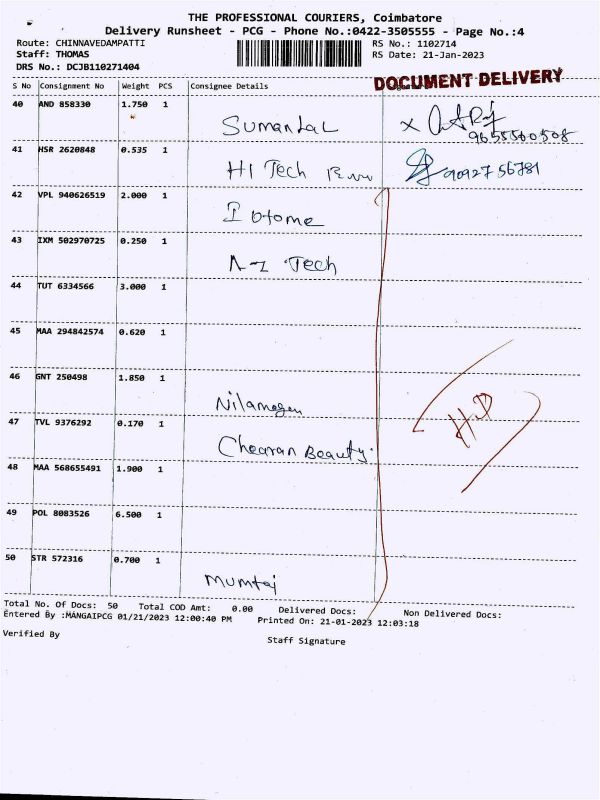 THE PROFESSIONAL COURIERS, Coimbatore
Delivery Runsheet - PCG - Phone No.:0422-3505555 - Page No.:4
Route: CHINNAVEDAMPATTI
Staff: THOMAS
DRS No.: DCJB110271404
RS No.: 1102714
RS Date: 21-Jan-2023
DOCUMENT DELIVERY
S No Consignment No Weight PCS Consignee Details
40 AND 858330 1.750 1 Sumandal x 9655560508
41 HSR 2620848 0.535 1 HI Tech 90927 56781
42 VPL 940626519 2.000 1
43 IXM 502970725 0.250 1 A-Z Tech
44 TUT 6334566 3.000 1
45 MAA 294842574 0.620 1
46 GNT 250498 1.850 1 Nilamegen
47 TVL 9376292 0.170 1 Chearan Beauty.
48 MAA 568655491 1.900 1
49 POL 8083526 6.500 1
50 STR 572316 0.700 1 Mumtaj
Total No. Of Docs: 50 Total COD Amt: 0.00 Delivered Docs: Non Delivered Docs:
Entered By :MANGAIPCG 01/21/2023 12:00:40 PM Printed On: 21-01-2023 12:03:18
Verified By Staff Signature